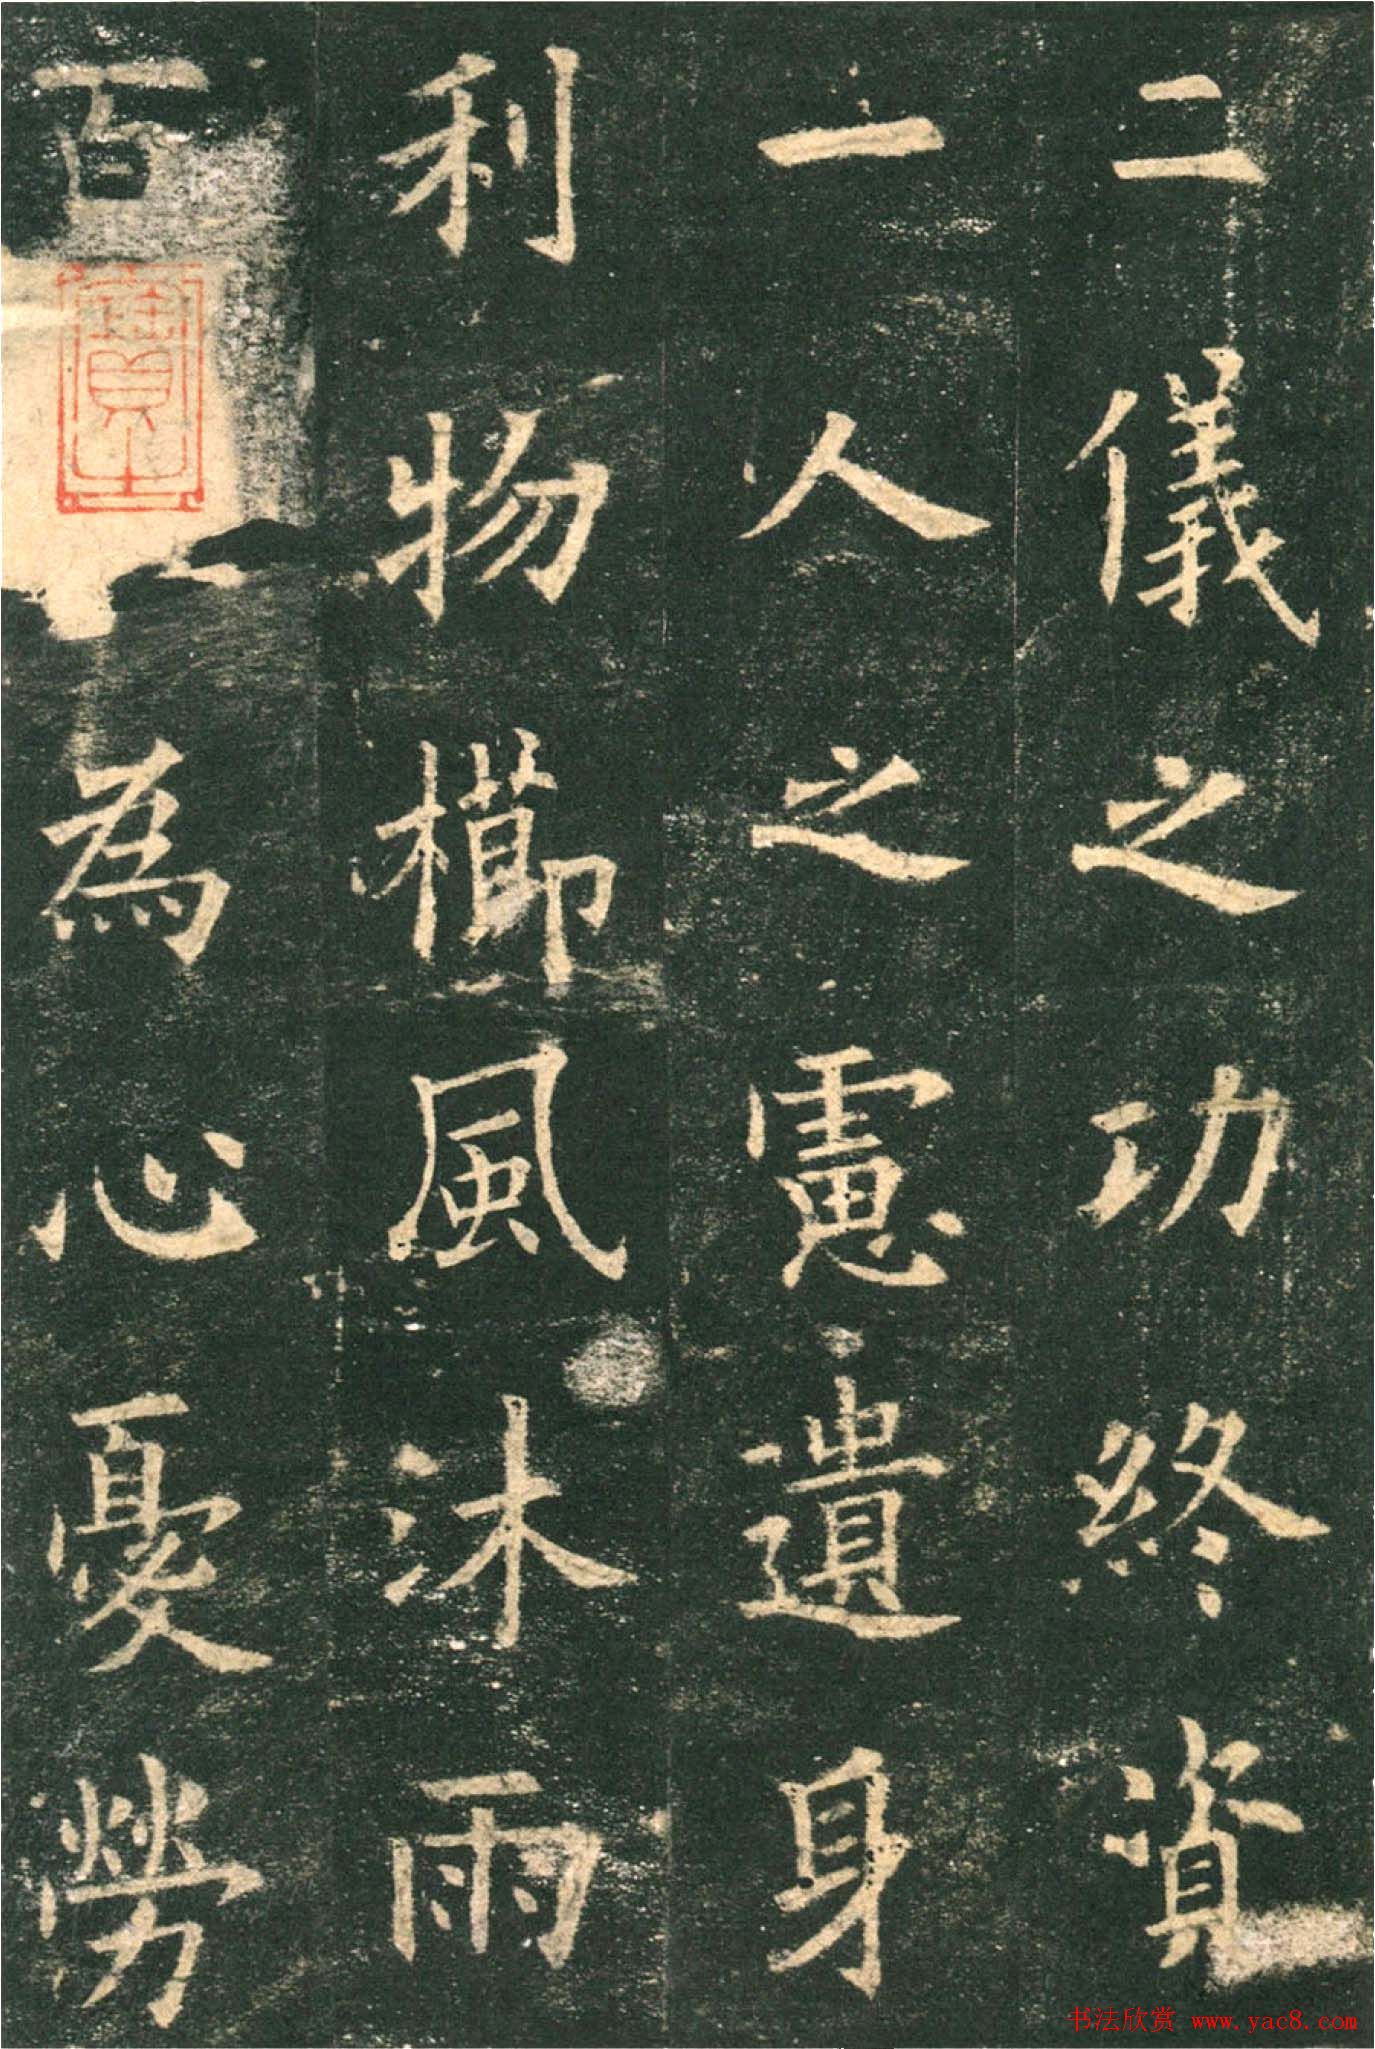 二儀之功終資
一人之慮遺身
利物櫛風沐雨
百為心憂勞
書法欣赏 www.yac8.com